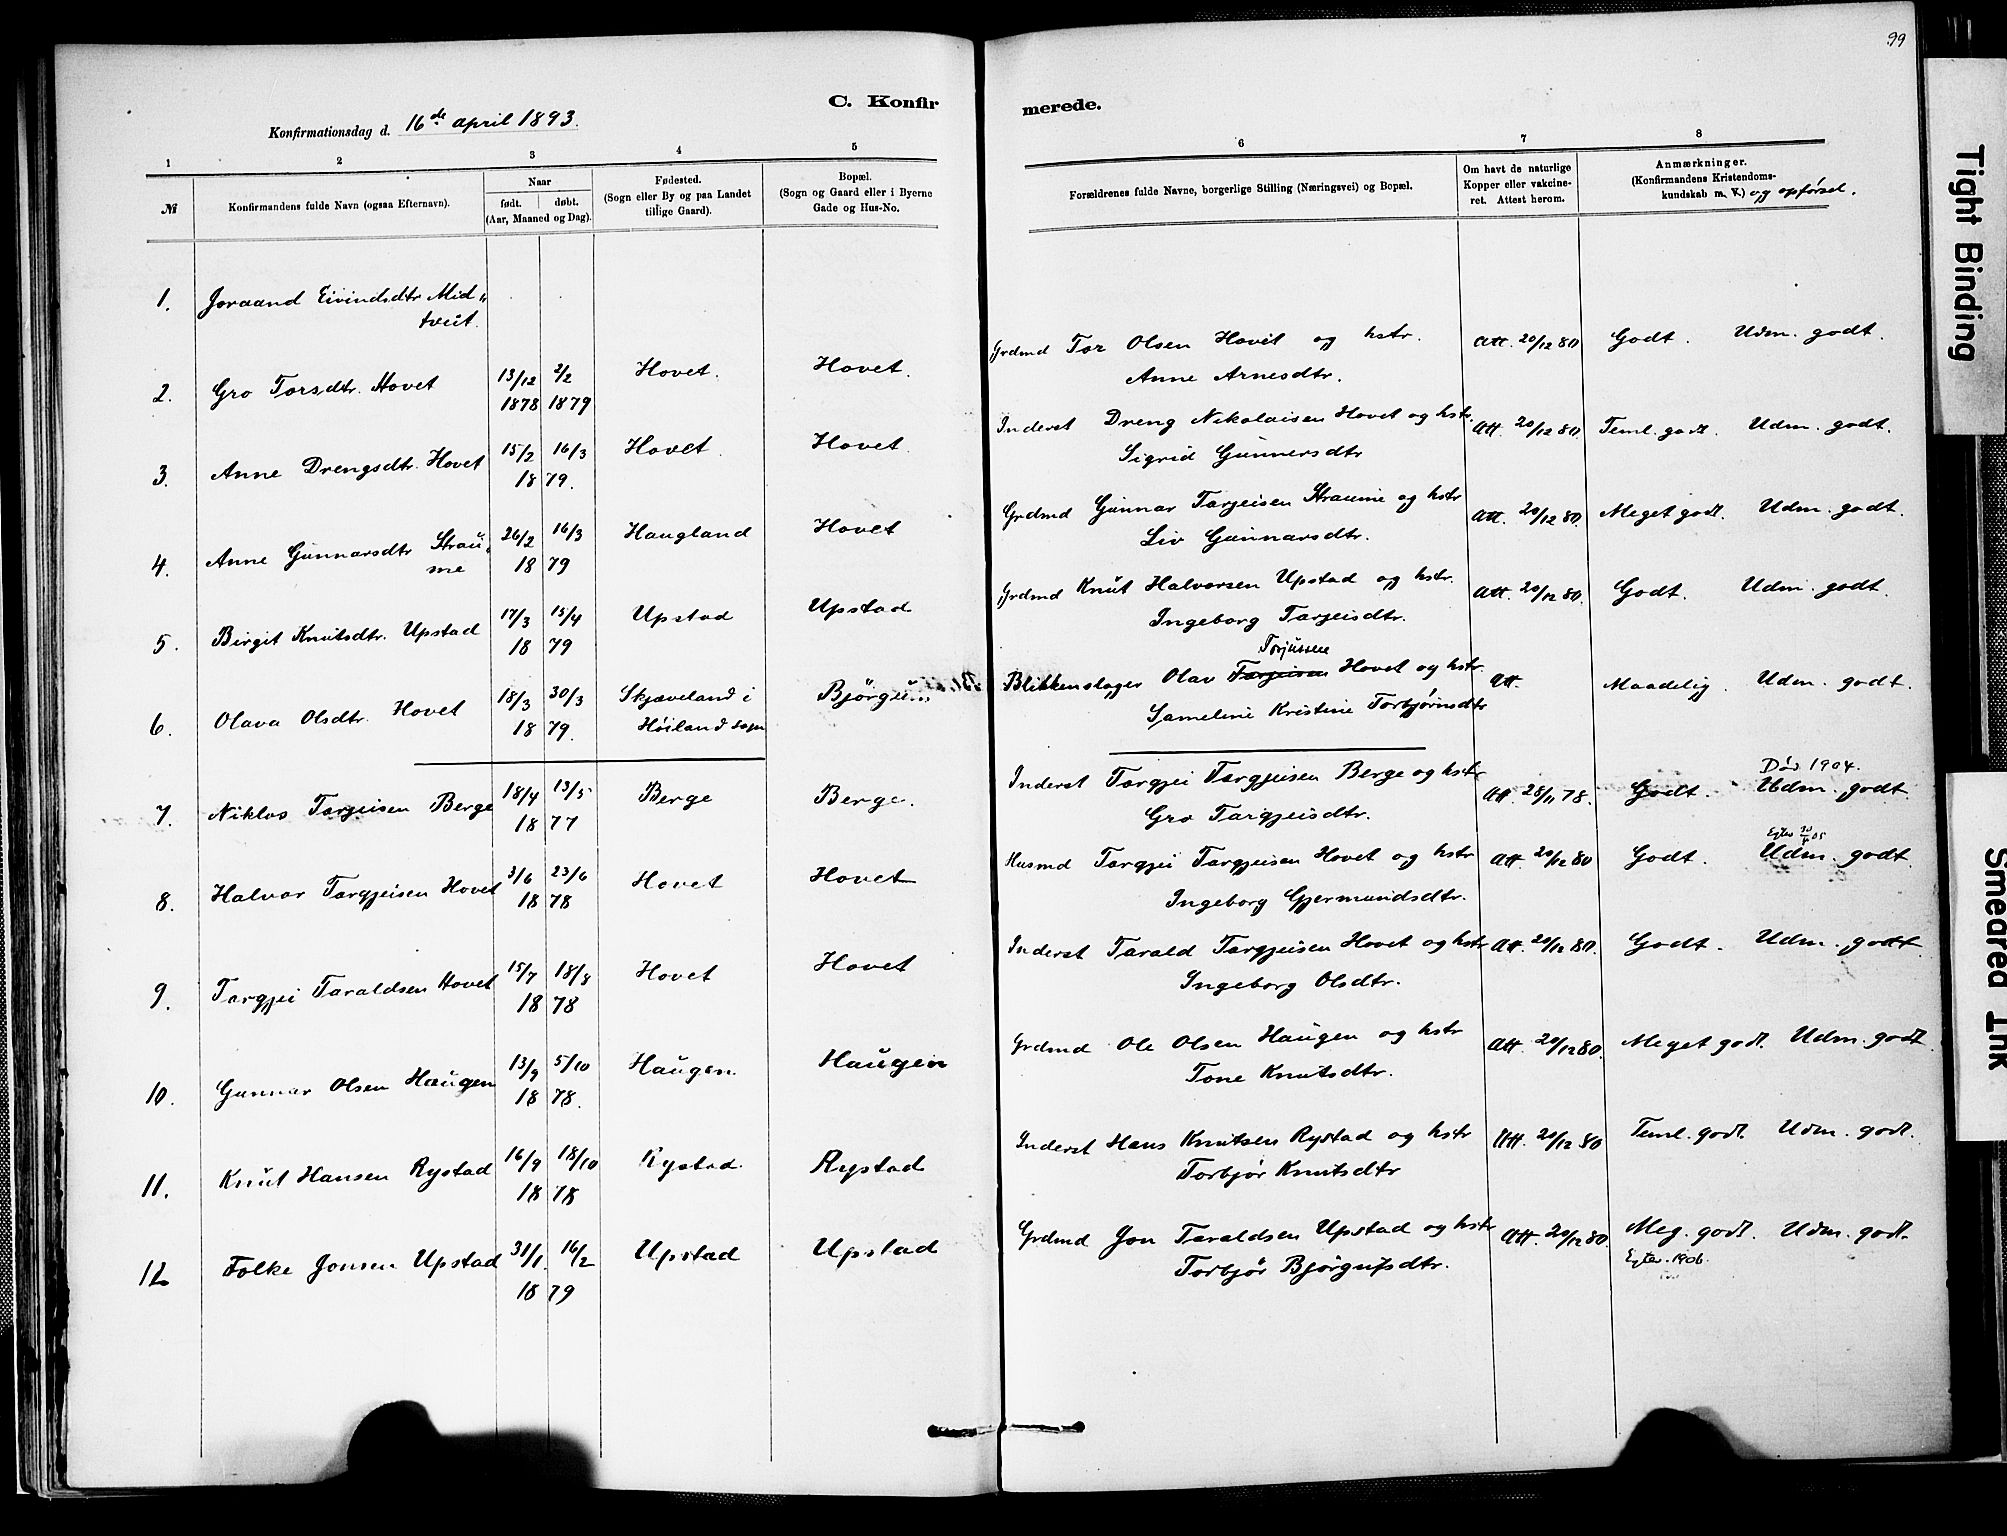 99
C. Konfir
merede.
Konfirmationsdag d. 16de april 1893.
1 2 3 4 5 6 7 8
№
Konfirmandens fulde Navn (ogsaa Efternavn).
Naar
født. døbt.
(Aar, Maaned og Dag).
Fødested.
(Sogn eller By og paa Landet
tillige Gaard).
Bopæl.
(Sogn og Gaard eller i Byerne
Gade og Hus-No.
Forældrenes fulde Navne, borgerlige Stilling (Næringsvei) og Bopæl.
Om havt de naturlige
Kopper eller vakcine-
ret. Attest herom.
Anmærkninger.
(Konfirmandens Kristendoms-
kundskab m. V.) og opførsel.
1. Joraand Eivindsdtr Mid„
tveit.
2. Gro Torsdtr. Hovet 13/12 2/2 Hovet. Hovet. Grdmd Tor Olsen Hovet og hstr. Att. 20/12 80 Godt. Udm. godt.
1878 1879 Anne Arnesdtr.
3. Anne Drengsdtr. Hovet 15/2 16/3 Hovet. Hovet. Inderst Dreng Nikolaisen Hovet og hstr. Att. 20/12 80. Teml. godt. Udm. godt.
18 79. Sigrid Gunnersdtr
4. Anne Gunnarsdtr Strau„ 26/2 16/3 Haugland Hovet Grdmd Gunnar Tarjeisen Straume og hstr Att. 20/12 80. Meget godt. Udm. godt.
me 18 79 Liv Gunnarsdtr.
5. Birgit Knutsdtr. Upstad 17/3 15/4 Upstad Upstad Grdmd Knut Halvorsen Upstad og hstr. Att. 20/12 80. Godt. Udm. godt.
18 79 Ingeborg Tarjeisdtr.
Torjussene
6. Olava Olsdtr. Hovet 18/3 30/3 Skjæveland i Bjørgum Blikkenslager Olav Tarjeisen Hovet og hstr. Att. Maadelig. Udm. godt.
18 79. Høiland sogn Sameline Kristine Torbjørnsdtr
Død 1904.
7. Niklos Tarjeisen Berge 18/4 13/5 Berge Berge. Inderst Targjei Targjeisen Berge og hstr Att. 28/11 78. Godt. Udm. godt.
18 77 Gro Targjeisdtr.
8. Halvor Targjeisen Hovet 3/6 23/6 Hovet Hovet Husmd Targjei Targjeisen Hovet og hstr Att. 20/12 80 Godt. Udm. godt.
18 78 Ingeborg Gjermundsdtr.
9. Targjei Taraldsen Hovet 15/7 18/8 Hovet Hovet Inderst Tarald Targjeisen Hovet og hstr Att. 20/12 80. Godt. Udm. godt
18 78 Ingeborg Olsdtr.
10. Gunnar Olsen Haugen 13/9 5/10 Haugen. Haugen Grdmd Ole Olsen Haugen og hstr Att. 20/12 80. Meget godt. Udm. godt
18 78. Tone Knutsdtr.
11. Knut Hansen Rystad 16/9 18/10 Rystad. Rystad Inderst Hans Knutsen Rystad og hstr Att. 20/12 80 Teml. godt. Udm. godt.
18 78 Torbjør Knutsdtr
12 Folke Jonsen Upstad 31/1. 16/2 Upstad Upstad Grdmd Jon Taraldsen Upstad og hstr Att. 20/12 80. Meg. godt. Udm. godt.
18 79 Torbjør Bjørgufsdtr. 1906.
Tight Binding
Smeared Ink